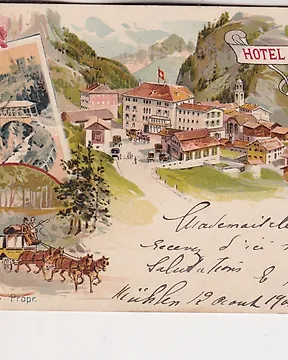 HOTEL
Mademoiselle
Recevez d'ici
Salutations &
Mühlen 12 août 190
Propr.